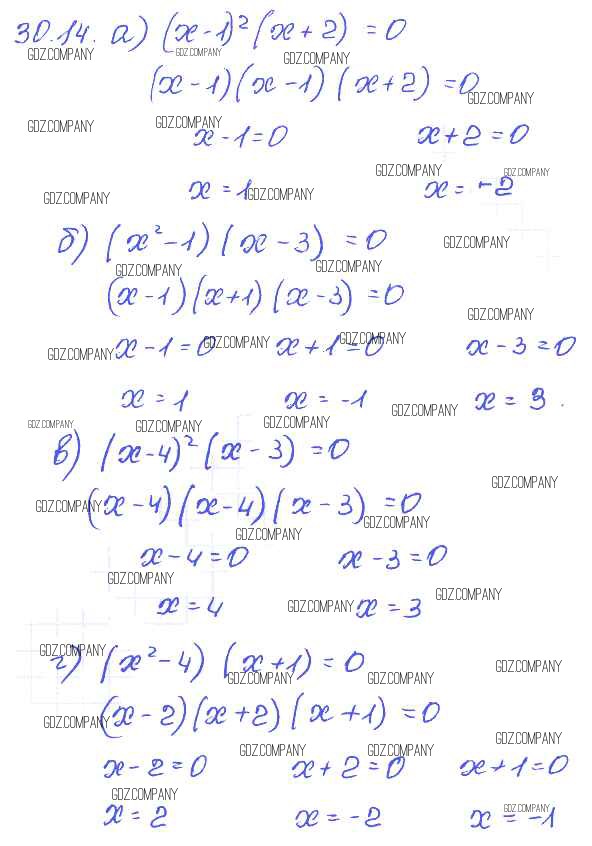 30.14. а) (x-1)² (x+2) = 0
GDZ.COMPANY GDZ.COMPANY GDZ.COMPANY
(x-1)(x-1)(x+2) = 0
GDZ.COMPANY
GDZ.COMPANY GDZ.COMPANY
x-1=0 x+2=0
GDZ.COMPANY GDZ.COMPANY
x=1 x=-2
GDZ.COMPANY GDZ.COMPANY
б) (x²-1)(x-3) = 0
GDZ.COMPANY
GDZ.COMPANY GDZ.COMPANY
(x-1)(x+1)(x-3) = 0
GDZ.COMPANY
x-1=0 x+1=0 x-3=0
GDZ.COMPANY GDZ.COMPANY GDZ.COMPANY
x=1 x=-1 x=3.
GDZ.COMPANY
GDZ.COMPANY GDZ.COMPANY GDZ.COMPANY
в) (x-4)² (x-3) = 0
GDZ.COMPANY
(x-4)(x-4)(x-3) = 0
GDZ.COMPANY GDZ.COMPANY
GDZ.COMPANY
x-4=0 x-3=0
GDZ.COMPANY GDZ.COMPANY
x=4 x=3
GDZ.COMPANY
г) (x²-4) (x+1) = 0
GDZ.COMPANY GDZ.COMPANY
GDZ.COMPANY GDZ.COMPANY
(x-2)(x+2)(x+1) = 0
GDZ.COMPANY GDZ.COMPANY
GDZ.COMPANY GDZ.COMPANY
x-2=0 x+2=0 x+1=0
GDZ.COMPANY
x=2 x=-2 x=-1
GDZ.COMPANY